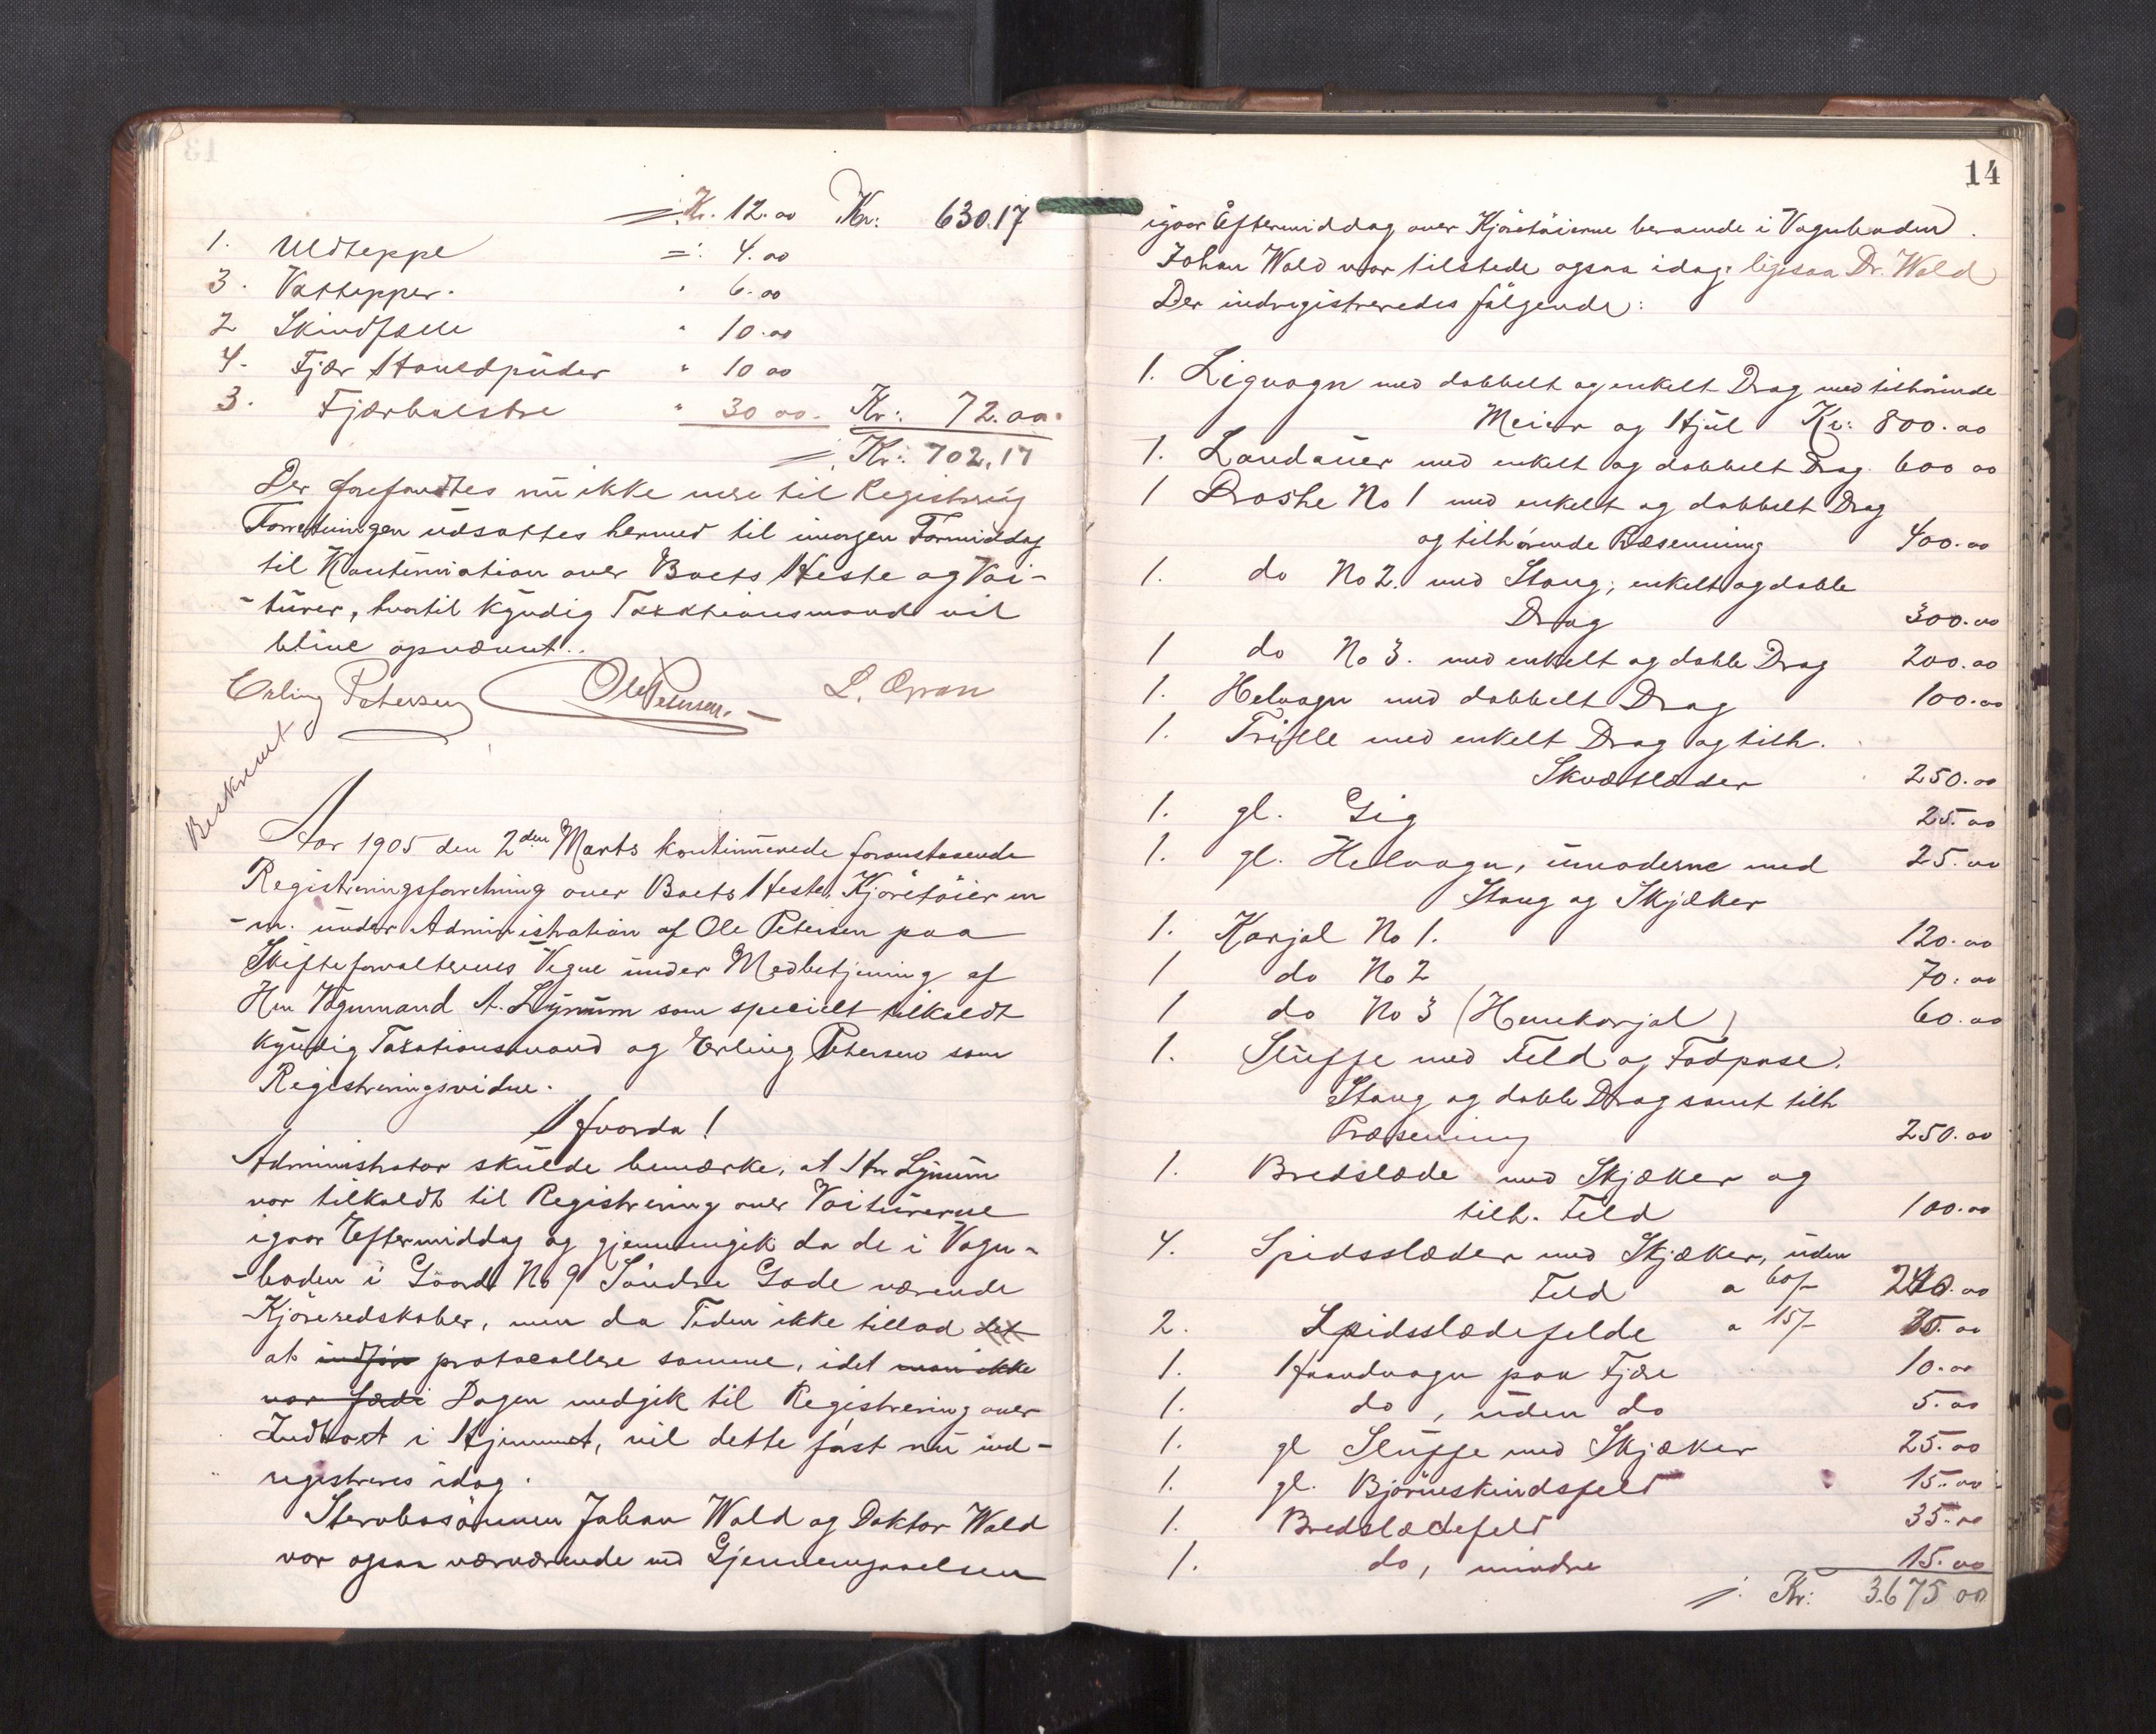 Kr. 12.00 Kr: 630.17
1. Uldteppe =: 4.00
3. Vattepper. " 6.00
2 Skindfæle " 10.00
4. Fjær Hovedpuder " 10 00
3. Fjærbolstre " 30 00. Kr: 72.00.
Kr: 702.17
Der forefandtes nu ikke mere til Registrering
Forretningen udsattes hermed til imorgen Formiddag
til Kontinuation over Boets Heste og Voi-
-turer, hvortil kyndig Taxationsmand vil
blive opnævnt..
Erling Petersen Ole Petersen. L. Opran
Beskrevet
Aar 1905 den 2den Marts kontinuerede foranstaaende
Registreringsforretning over Boets Heste, Kjøretøier m
-m. under Administration af Ole Petersen paa
Skifteforvalterens Vegne under Medbetjening af
Hr. Vognmand A. Lynum som specielt tilkaldt
kyndig Taxationsmand og Erling Petersen som
Registreringsvidne.
Hvorda!
Administrator skulde bemærke, at Hr Lynum
var tilkaldt til Registrering over Voiturerne
igaar Eftermiddag og gjennemgik da de i Vogn-
-boden i Gaard No 9 Søndre Gade værende
Kjøreredskaber, men da Tiden ikke tillod det
at indfør protocollere samme, idet man ikke
var færdi Dagen medgik til Registrering over
Indboet i Hjemmet, vil dette først nu ind-
registreres idag.
Stervbosønnen Johan Wold og Doktor Wold
var ogsaa nærværende ved Gjennemgaaelsen
14
igaar Eftermiddag over Kjøretøierne beroende i Vognboden.
Johan Wold var tilstede ogsaa idag. ligesaa Dr. Wold
Der indregistreredes følgende:
1. Ligvogn med dobbelt og enkelt Drag med tilhørende
Meier og Hjul Kr: 800.00
1. Landauer med enkelt og dobbelt Drag. 600 00
1 Droshe No 1 med enkelt og dobbelt Drag
og tilhørende Præsenning 400.00
1. do No 2. med Stang, enkelt og doble
Drag 300.00
1 do No 3. med enkelt og doble Drag 200.00
1. Helvogn med dobbelt Drag 100.00
1. Trille med enkelt Drag og tilh.
Skvætlæder 250.00
1. gl. Gig 25.00
1. gl. Helvogn, umoderne med 25.00
Stang og Skjæker
1. Karjol No 1. 120.00
1 do No 2 70.00
1 do No 3 (Hemkarjol) 60.00
1. Sluffe med Feld og Fodpose.
Stang og doble Drag samt tilh
Præsenning 250.00
1. Bredslæde med Skjæker og
tilh. Feld 100.00
4. Spidsslæder med Skjæker, uden
Feld a 60/- 240.00
2. Spidsslædefelde a 15/- 30.00
1. Haandvogn paa Fjære 10.00
1. do, uden do 5.00
1. gl Sluffe med Skjæker 25.00
1. gl. Bjørneskindsfeld 15.00
1. Bredslædefeld 35.00
1. do, mindre 15.00
Kr: 3.675 00